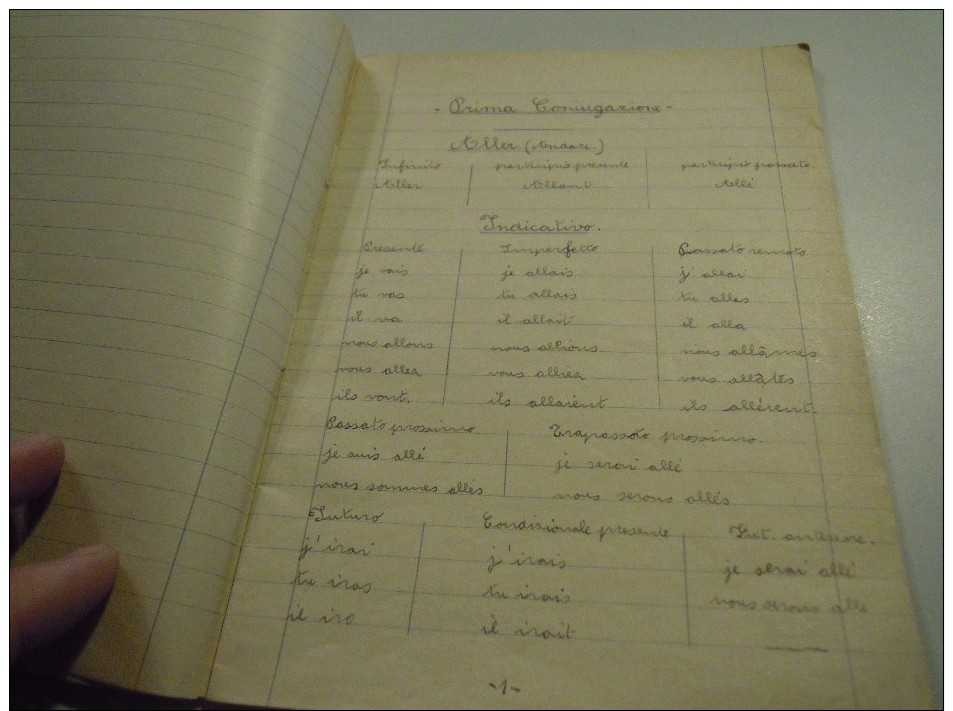 - Prima Coniugazione -
Aller (Andare.)
Infinito participio presente participio passato
Aller Allant Allé
Indicativo.
Presente Imperfetto Passato remoto
je vais je allais j' allai
tu vas tu allais tu allas
il va il allait il alla
nous allons nous allions nous allâmes
vous allez vous alliez vous allâtes
ils vont. ils allaient ils allèrent.
Passato prossimo Trapassato prossimo
je suis allé je serai allé
nous sommes allés nous serons allés
Futuro Condizionale presente Fut. anteriore.
j'irai j'irais je serai allé
tu iras tu irais nous serons allé
il ira il irait
-1-